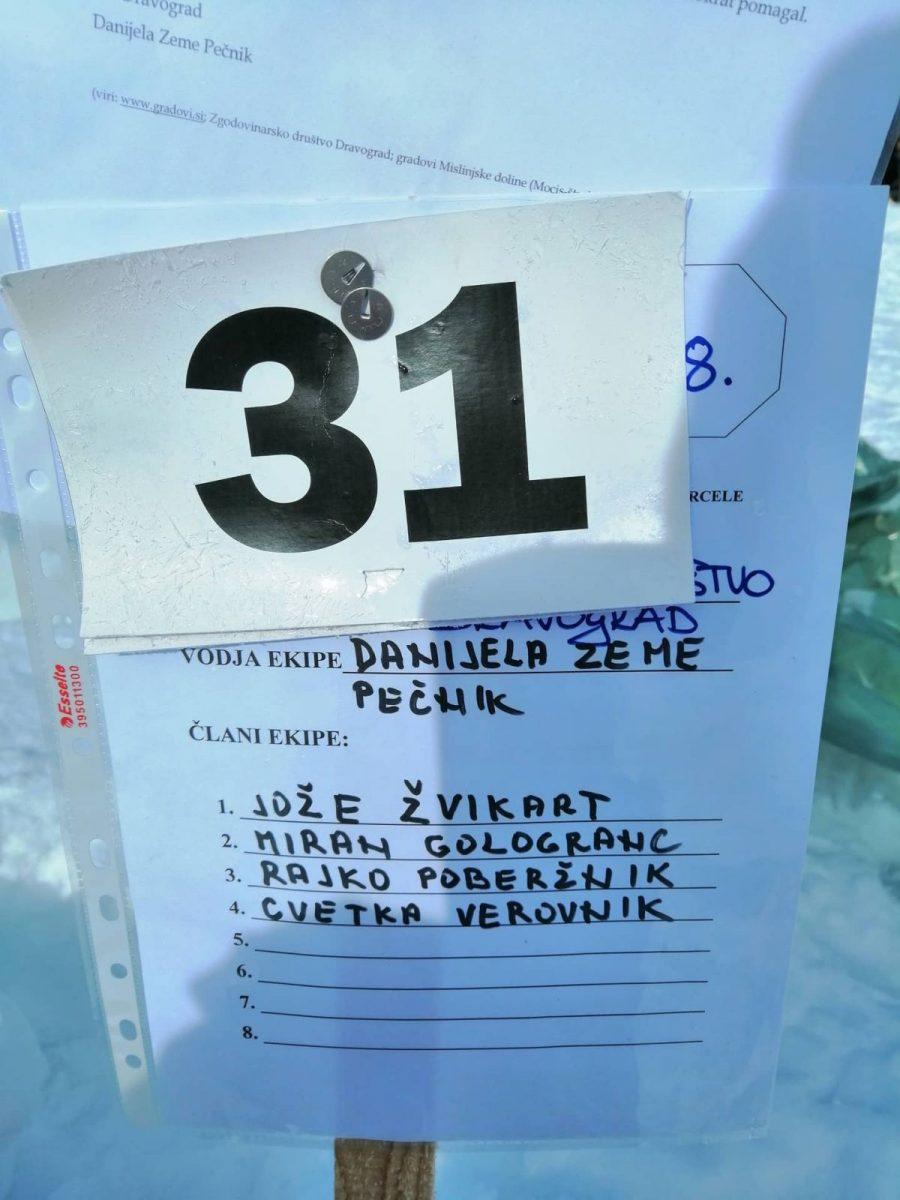 Dravograd
pomagal.
Danijela Zeme Pečnik
(viri: www.gradovi.si; Zgodovinarsko društvo Dravograd; gradovi Mislinjske doline
31
8.
RCELE
ŠTVO
DRAVOGRAD
VODJA EKIPE DANIJELA ZEME
PEČNIK
ČLANI EKIPE:
1. JOŽE ŽVIKART
2. MIRAN GOLOGRANC
3. RAJKO POBERŽNIK
4. CVETKA VEROVNIK
5.
6.
7.
8.
Esselte
395011300